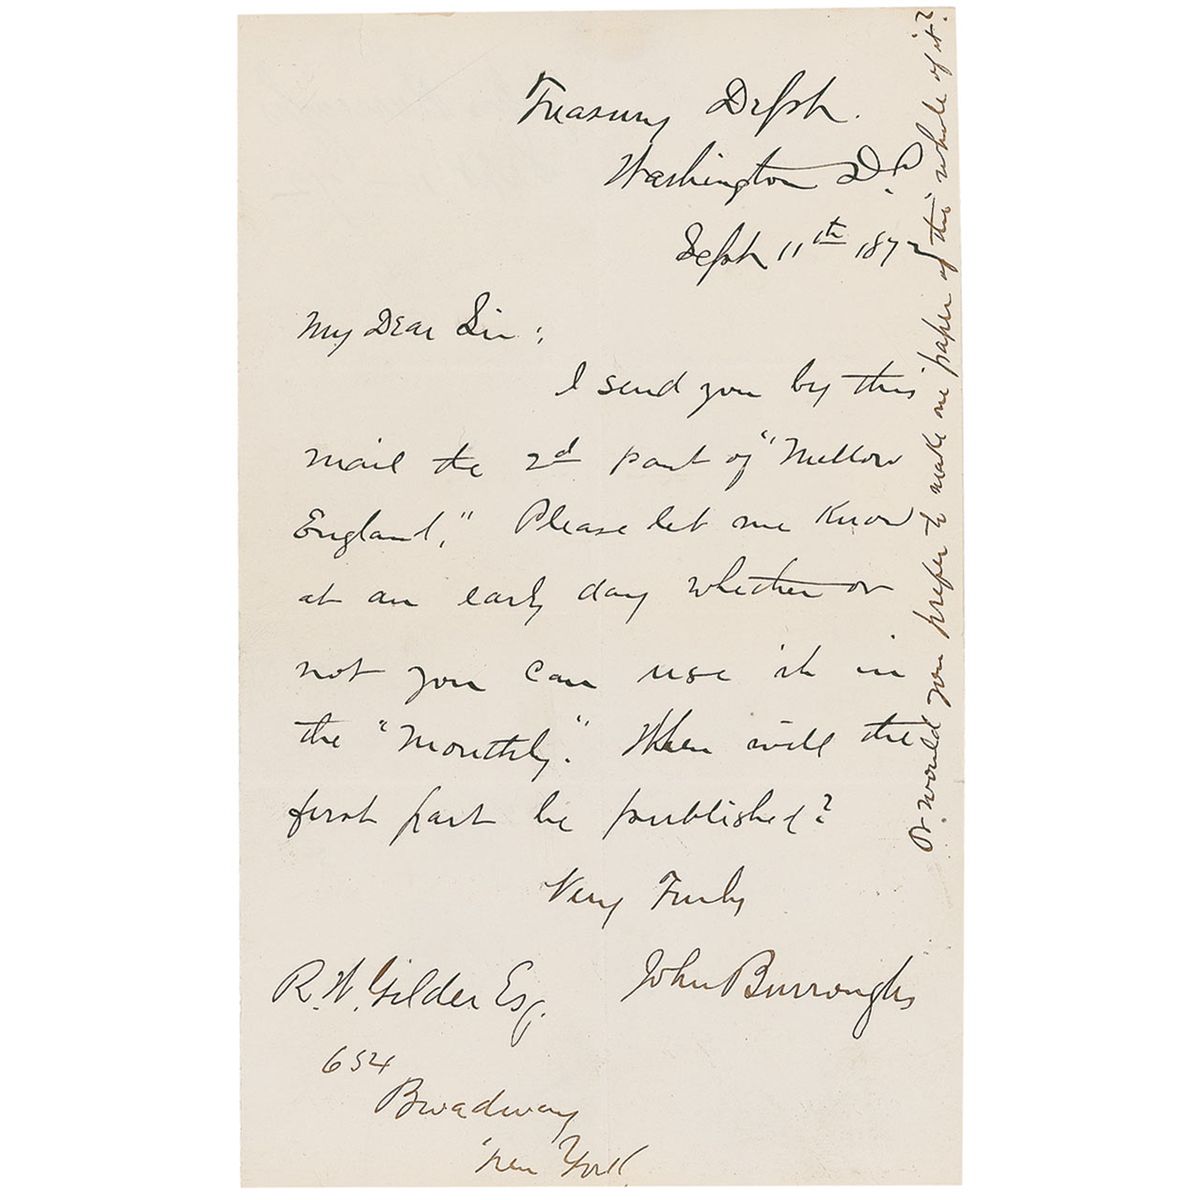 Treasury Dept.
Washington D.C.
Sept 11th 1872
My Dear Sir:
I send you by this
mail the 2d part of "Mellow
England." Please let me know
at an early day whether or
not you can use it in
the "Monthly." When will the
first part be published?
Very Truly
John Burroughs
R. W. Gilder Esq.
654
Broadway
New York
Or would you prefer to make one paper of the whole of it?